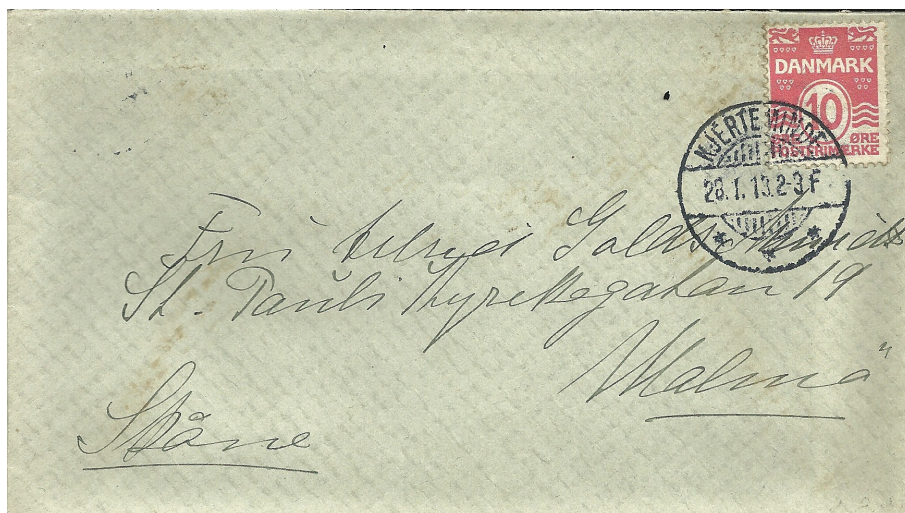 DANMARK
10
ØRE
POSTERIMÆRKE
KJERTEMINDE
28.1.13.2-3 F
Fru Goldschmidt
St. Pauli Kyrkogatan 19
Malmö
Skåne